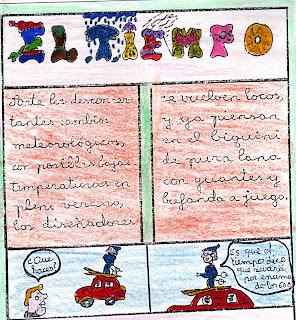 EL TIEMPO
Ante los descon cer
tantes cambios
meteorológicos,
con posibles bajas
temperaturas en
pleno verano,
los diseñadores
se vuelven locos,
y ya piensan
en el biquini
de pura lana
con guantes y
bufanda a juego.
¿Que
haces?
Es que el
tiempo dice
que nevará
por encima
de los 600